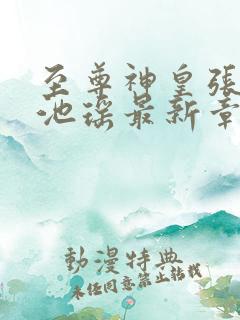 至尊神皇張
池瑤最新章
動漫特典
未经同意禁止转载